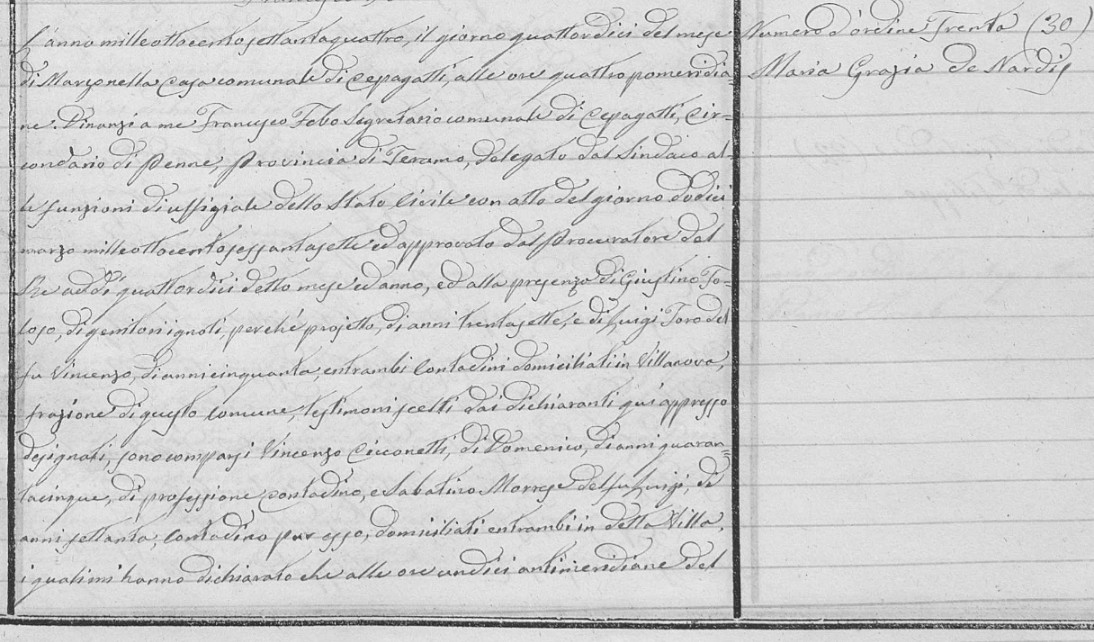 L'anno milleottocentosettantaquattro, il giorno quattordici del mese
di Marzo nella Casa comunale di Cepagatti, alle ore quattro pomeridia=
ne. Dinanzi a me Francesco Febo Segretario comunale di Cepagatti, Cir=
condario di Penne, Provincia di Teramo, delegato dal Sindaco al=
le funzioni di uffiziale dello Stato Civile con atto del giorno dodici
marzo milleottocentosessantasette ed approvato dal Procuratore del
Re addì quattordici detto mese ed anno, ed alla presenza di Giustino To=
loso, di genitori ignoti, perché projetto, di anni trentasette, e di Luigi Toro del
fu Vincenzo, di anni cinquanta, entrambi Contadini domiciliati in Villanova,
frazione di questo comune, testimoni scelti dai dichiaranti qui appresso
designati, sono comparsi Vincenzo Cicconetti, di Domenico, di anni quaran=
tacinque, di professione contadino, e Sabatino Morrese del fu Luigi, di
anni settanta, Contadino pur esso, domiciliati entrambi in detta Villa,
i quali mi hanno dichiarato che alle ore undici antimeridiane del
Numero d'ordine Trenta (30)
Maria Grazia de Nardis